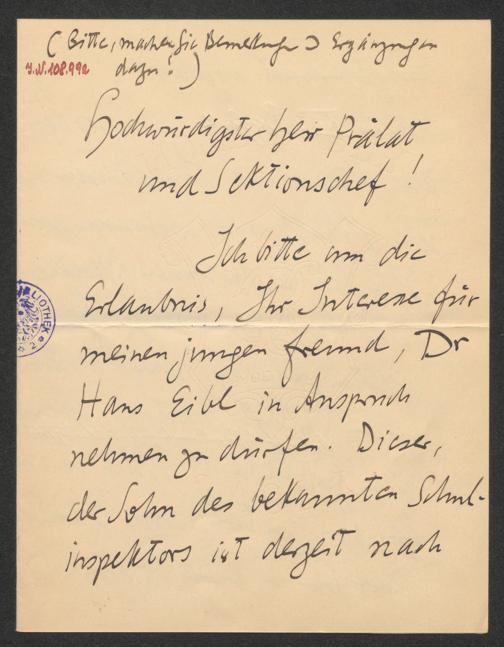 (Bitte, machen Sie Bemerkungen & Ergänzungen
dazu!)
J.N. 108.992
Hochwürdigster Herr Prälat
und Sektionschef!
Ich bitte um die
Erlaubnis, Ihr Interesse für
meinen jungen Freund, Dr
Hans Eibl in Anspruch
nehmen zu dürfen. Dieser,
der Sohn des bekannten Schul-
inspektors ist derzeit nach
LIOTHEK